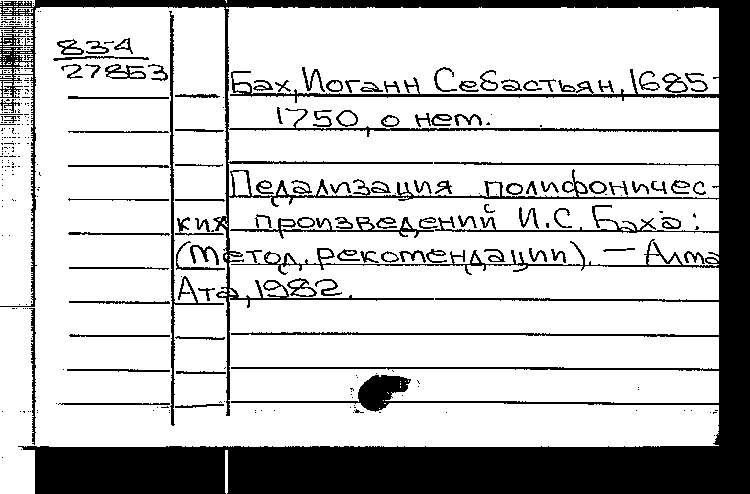 83-4
27853
Бах, Иоганн Себастьян, 1685-
1750, о нем.
Педализация полифоничес-
ких произведений И.С. Баха:
(Метод. рекомендации). — Алма
Ата, 1982.